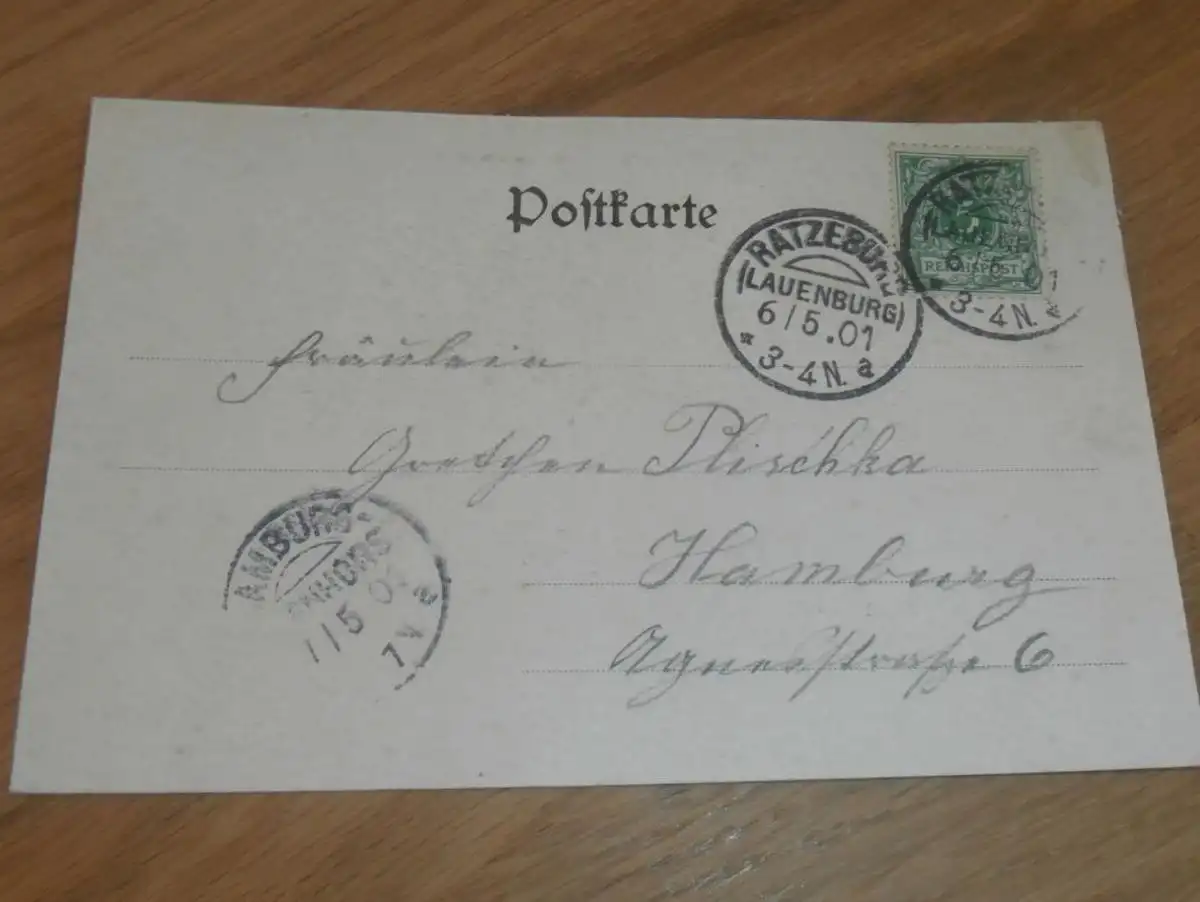 Postkarte
RATZEBURG
(LAUENBURG)
6/5.01
* 3-4 N. a
RATZ
(LAUE
6/5 01
* 3-4 N. a
REICHSPOST
Fräulein
Gretchen Plischka
Hamburg
Agnesstraße 6
AMBURG-
HORS
/5 01
7 V a